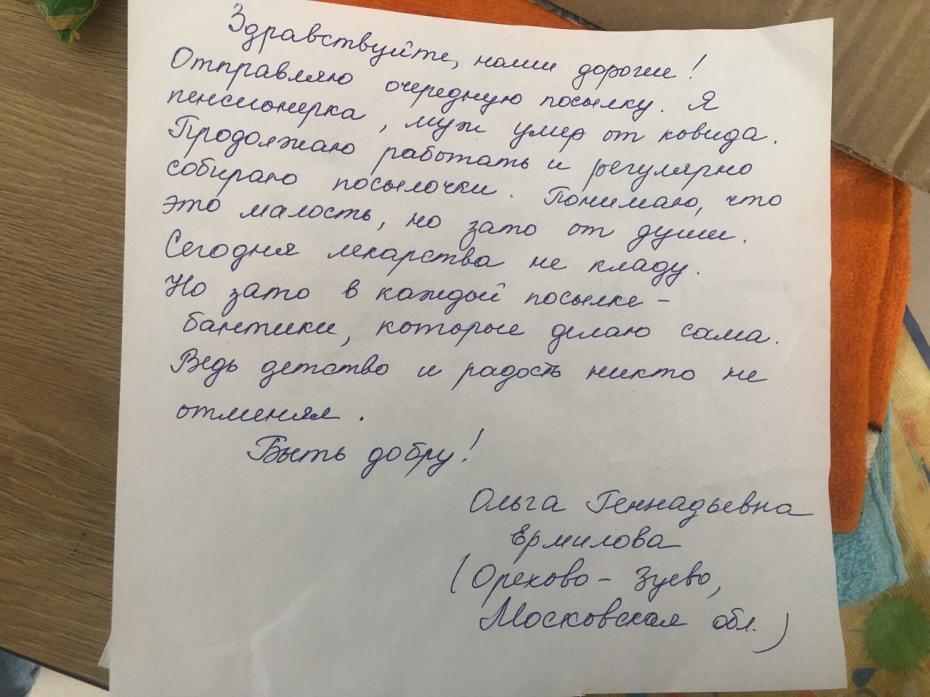 Здравствуйте, наши дорогие!
Отправляю очередную посылку. Я
пенсионерка, муж умер от ковида.
Продолжаю работать и регулярно
собираю посылочки. Понимаю, что
это малость, но зато от души.
Сегодня лекарства не кладу.
Но зато в каждой посылке –
бантики, которые делаю сама.
Ведь детство и радость никто не
отменял.
Быть добру!
Ольга Геннадьевна
Ермилова
(Орехово – Зуево,
Московская обл.)